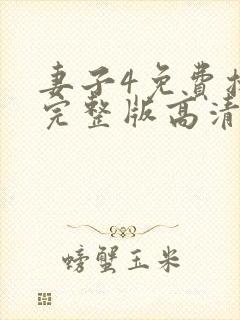 妻子4免费
完整版高清
螃蟹玉米